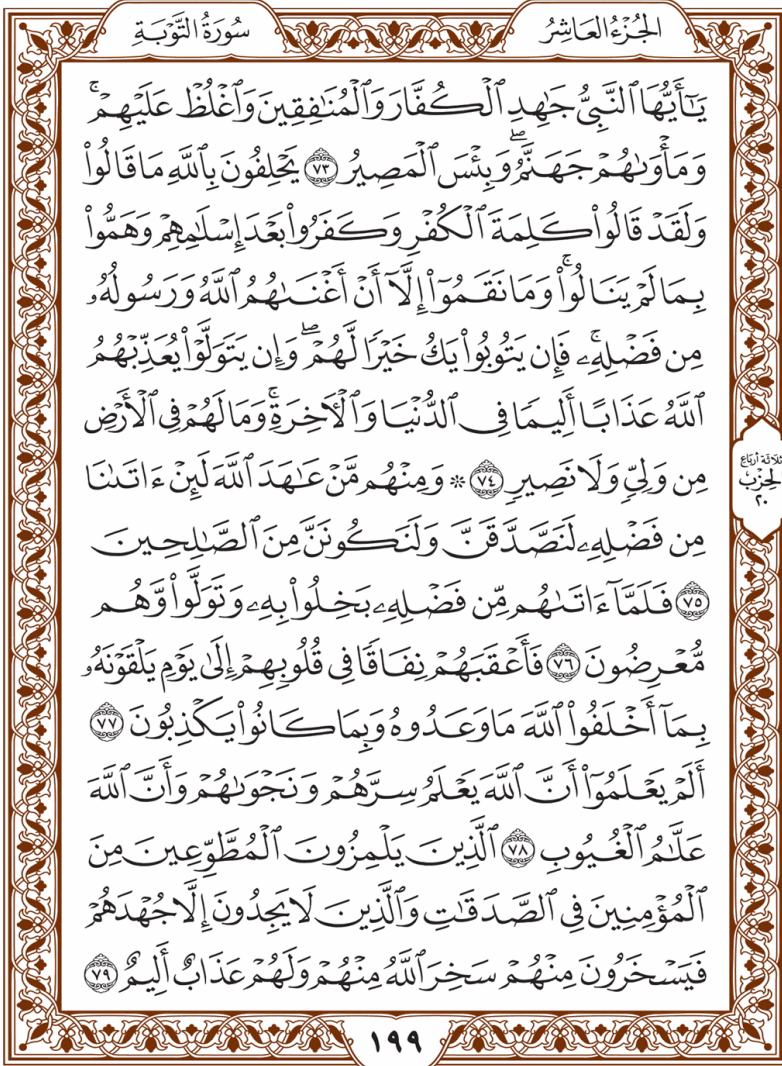 الجُزْءُ العَاشِرُ
سُورَةُ التَّوْبَةِ
يَـٰٓأَيُّهَا ٱلنَّبِيُّ جَـٰهِدِ ٱلْكُفَّارَ وَٱلْمُنَـٰفِقِينَ وَٱغْلُظْ عَلَيْهِمْۚ
وَمَأْوَىٰهُمْ جَهَنَّمُۖ وَبِئْسَ ٱلْمَصِيرُ ٧٣ يَحْلِفُونَ بِٱللَّهِ مَا قَالُوا۟
وَلَقَدْ قَالُوا۟ كَلِمَةَ ٱلْكُفْرِ وَكَفَرُوا۟ بَعْدَ إِسْلَـٰمِهِمْ وَهَمُّوا۟
بِمَا لَمْ يَنَالُوا۟ۚ وَمَا نَقَمُوٓا۟ إِلَّآ أَنْ أَغْنَىٰهُمُ ٱللَّهُ وَرَسُولُهُۥ
مِن فَضْلِهِۦۚ فَإِن يَتُوبُوا۟ يَكُ خَيْرًا لَّهُمْۖ وَإِن يَتَوَلَّوْا۟ يُعَذِّبْهُمُ
ٱللَّهُ عَذَابًا أَلِيمًا فِى ٱلدُّنْيَا وَٱلْـَٔاخِرَةِۚ وَمَا لَهُمْ فِى ٱلْأَرْضِ
مِن وَلِىٍّ وَلَا نَصِيرٍ ٧٤ ۞ وَمِنْهُم مَّنْ عَـٰهَدَ ٱللَّهَ لَئِنْ ءَاتَىٰنَا
مِن فَضْلِهِۦ لَنَصَّدَّقَنَّ وَلَنَكُونَنَّ مِنَ ٱلصَّـٰلِحِينَ
٧٥ فَلَمَّآ ءَاتَىٰهُم مِّن فَضْلِهِۦ بَخِلُوا۟ بِهِۦ وَتَوَلَّوا۟ وَّهُم
مُّعْرِضُونَ ٧٦ فَأَعْقَبَهُمْ نِفَاقًا فِى قُلُوبِهِمْ إِلَىٰ يَوْمِ يَلْقَوْنَهُۥ
بِمَآ أَخْلَفُوا۟ ٱللَّهَ مَا وَعَدُوهُ وَبِمَا كَانُوا۟ يَكْذِبُونَ ٧٧
أَلَمْ يَعْلَمُوٓا۟ أَنَّ ٱللَّهَ يَعْلَمُ سِرَّهُمْ وَنَجْوَىٰهُمْ وَأَنَّ ٱللَّهَ
عَلَّـٰمُ ٱلْغُيُوبِ ٧٨ ٱلَّذِينَ يَلْمِزُونَ ٱلْمُطَّوِّعِينَ مِنَ
ٱلْمُؤْمِنِينَ فِى ٱلصَّدَقَـٰتِ وَٱلَّذِينَ لَا يَجِدُونَ إِلَّا جُهْدَهُمْ
فَيَسْخَرُونَ مِنْهُمْ سَخِرَ ٱللَّهُ مِنْهُمْ وَلَهُمْ عَذَابٌ أَلِيمٌ ٧٩
ثلاثة أرباع
الحِزْب
٢٠
١٩٩